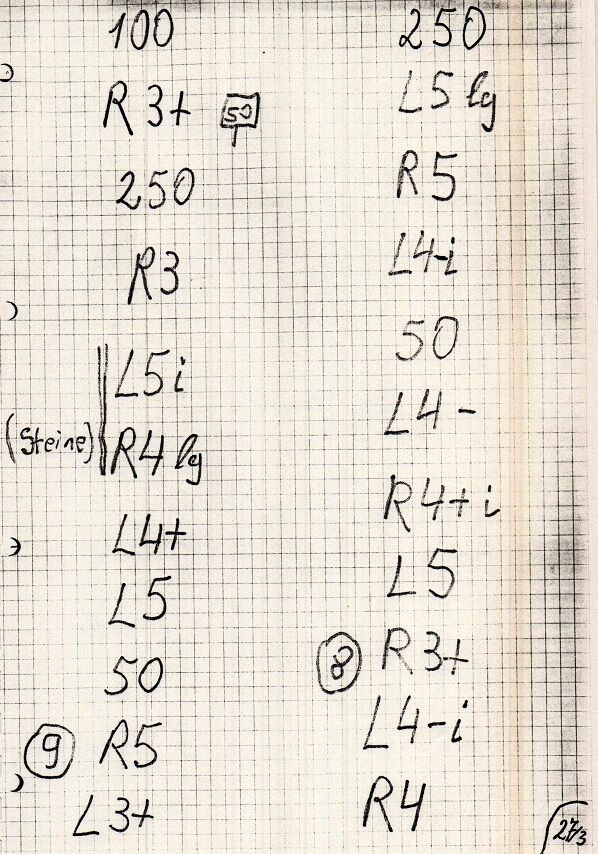 100
R3+ 50
250
R3
L5i
(Steine) R4 lg
L4+
L5
50
9 R5
L3+
250
L5 lg
R5
L4-i
50
L4-
R4+i
L5
8 R3+
L4-i
R4
27/3